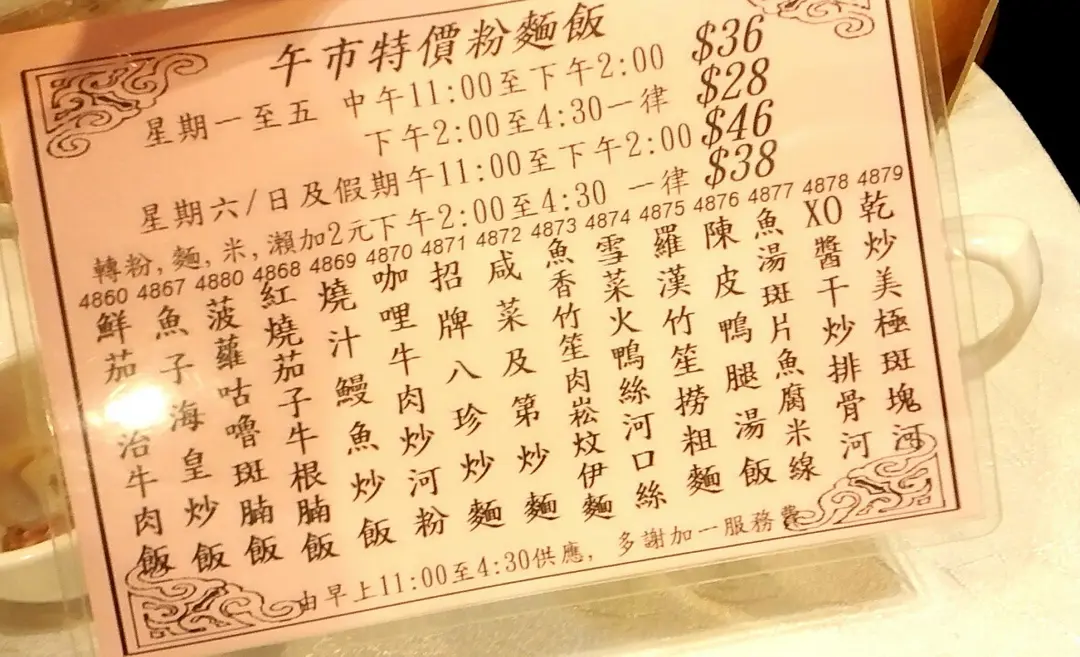 午市特價粉麵飯
星期一至五 中午11:00至下午2:00 $36
下午2:00至4:30一律 $28
星期六/日及假期午11:00至下午2:00 $46
轉粉,麵,米,瀨加2元下午2:00至4:30 一律 $38
4860 4867 4880 4868 4869 4870 4871 4872 4873 4874 4875 4876 4877 4878 4879
鮮茄治牛肉飯
魚子海皇炒飯
菠蘿咕嚕斑腩飯
紅燒茄子牛根腩飯
燒汁鰻魚炒飯
咖哩牛肉炒河粉
招牌八珍炒麵
咸菜及第炒麵
魚香竹笙肉崧炆伊麵
雪菜火鴨絲河口絲
羅漢竹笙撈粗麵
陳皮鴨腿湯飯
魚湯斑片魚腐米線
XO醬干炒排骨河
乾炒美極斑塊河
由早上11:00至4:30供應, 多謝加一服務費